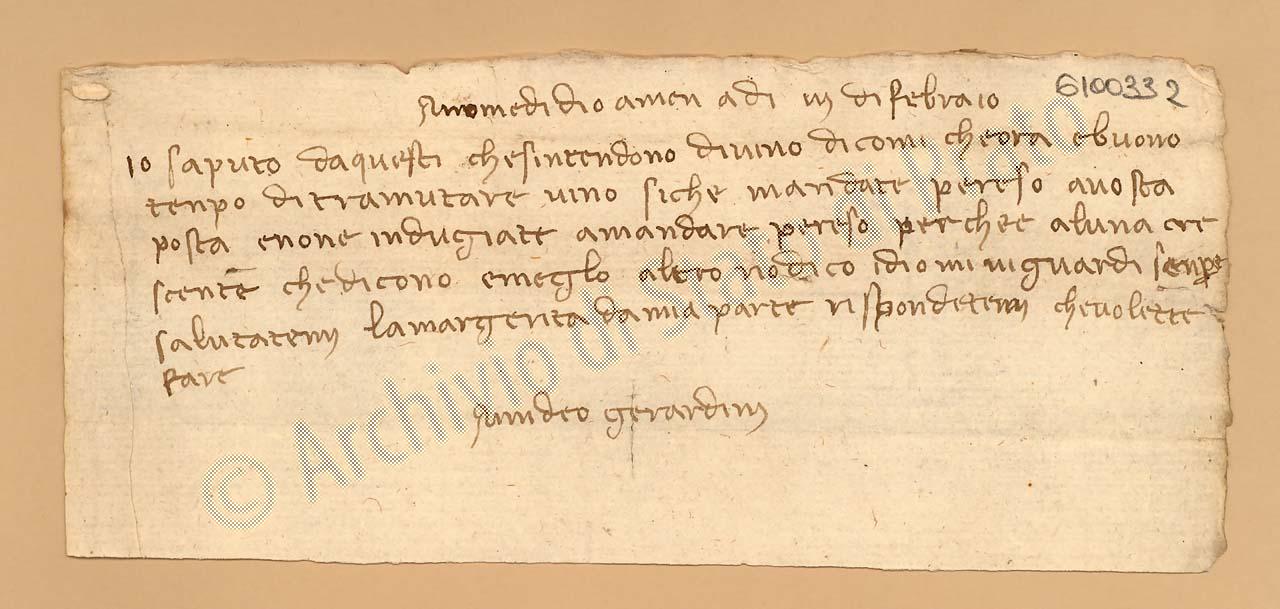 6100332
Al nome di dio amen a di iij di febraio
io saputo daquesti chesintendono divino dicomi cheora ebuono
tenpo ditramutare vino siche mandate pereso avosta
posta enone indugiate amandare pereso perchee aluna cre
scente chedicono emeglo altro nodico idio mi viguardi senpre
salutatemi lamargerita damia parte rispondetemi chevolette
fare
gerardini
© Archivio di Stato di Prato